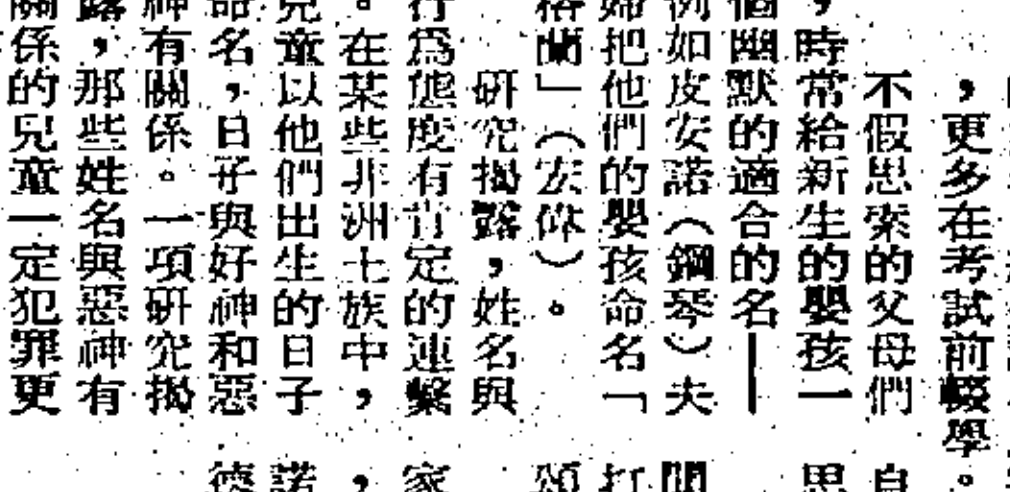 ，更多在考試前輟學。
不假思索的父母們
，時常給新生的嬰孩一
個幽默的適合的名——
例如皮安諾（鋼琴）夫
婦把他們的嬰孩命名「
格蘭」（宏偉）。
研究揭露，姓名與
行爲態度有肯定的連繫
。在某些非洲土族中，
兒童以他們出生的日子
命名，日子與好神和惡
神有關係。一項研究揭
露，那些姓名與惡神有
關係的兒童一定犯罪更
自
思
打
頌
家
，
諾
德